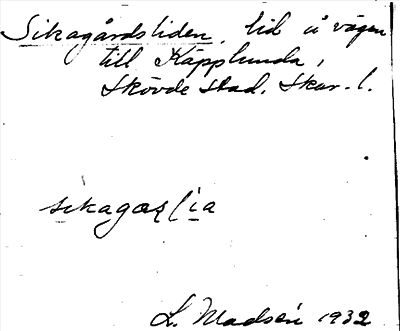 Sikagårdsliden, lid å vägen
till Käpplunda,
Skövde stad. Skar. l.
sikagaʂlia
L. Madsén 1932